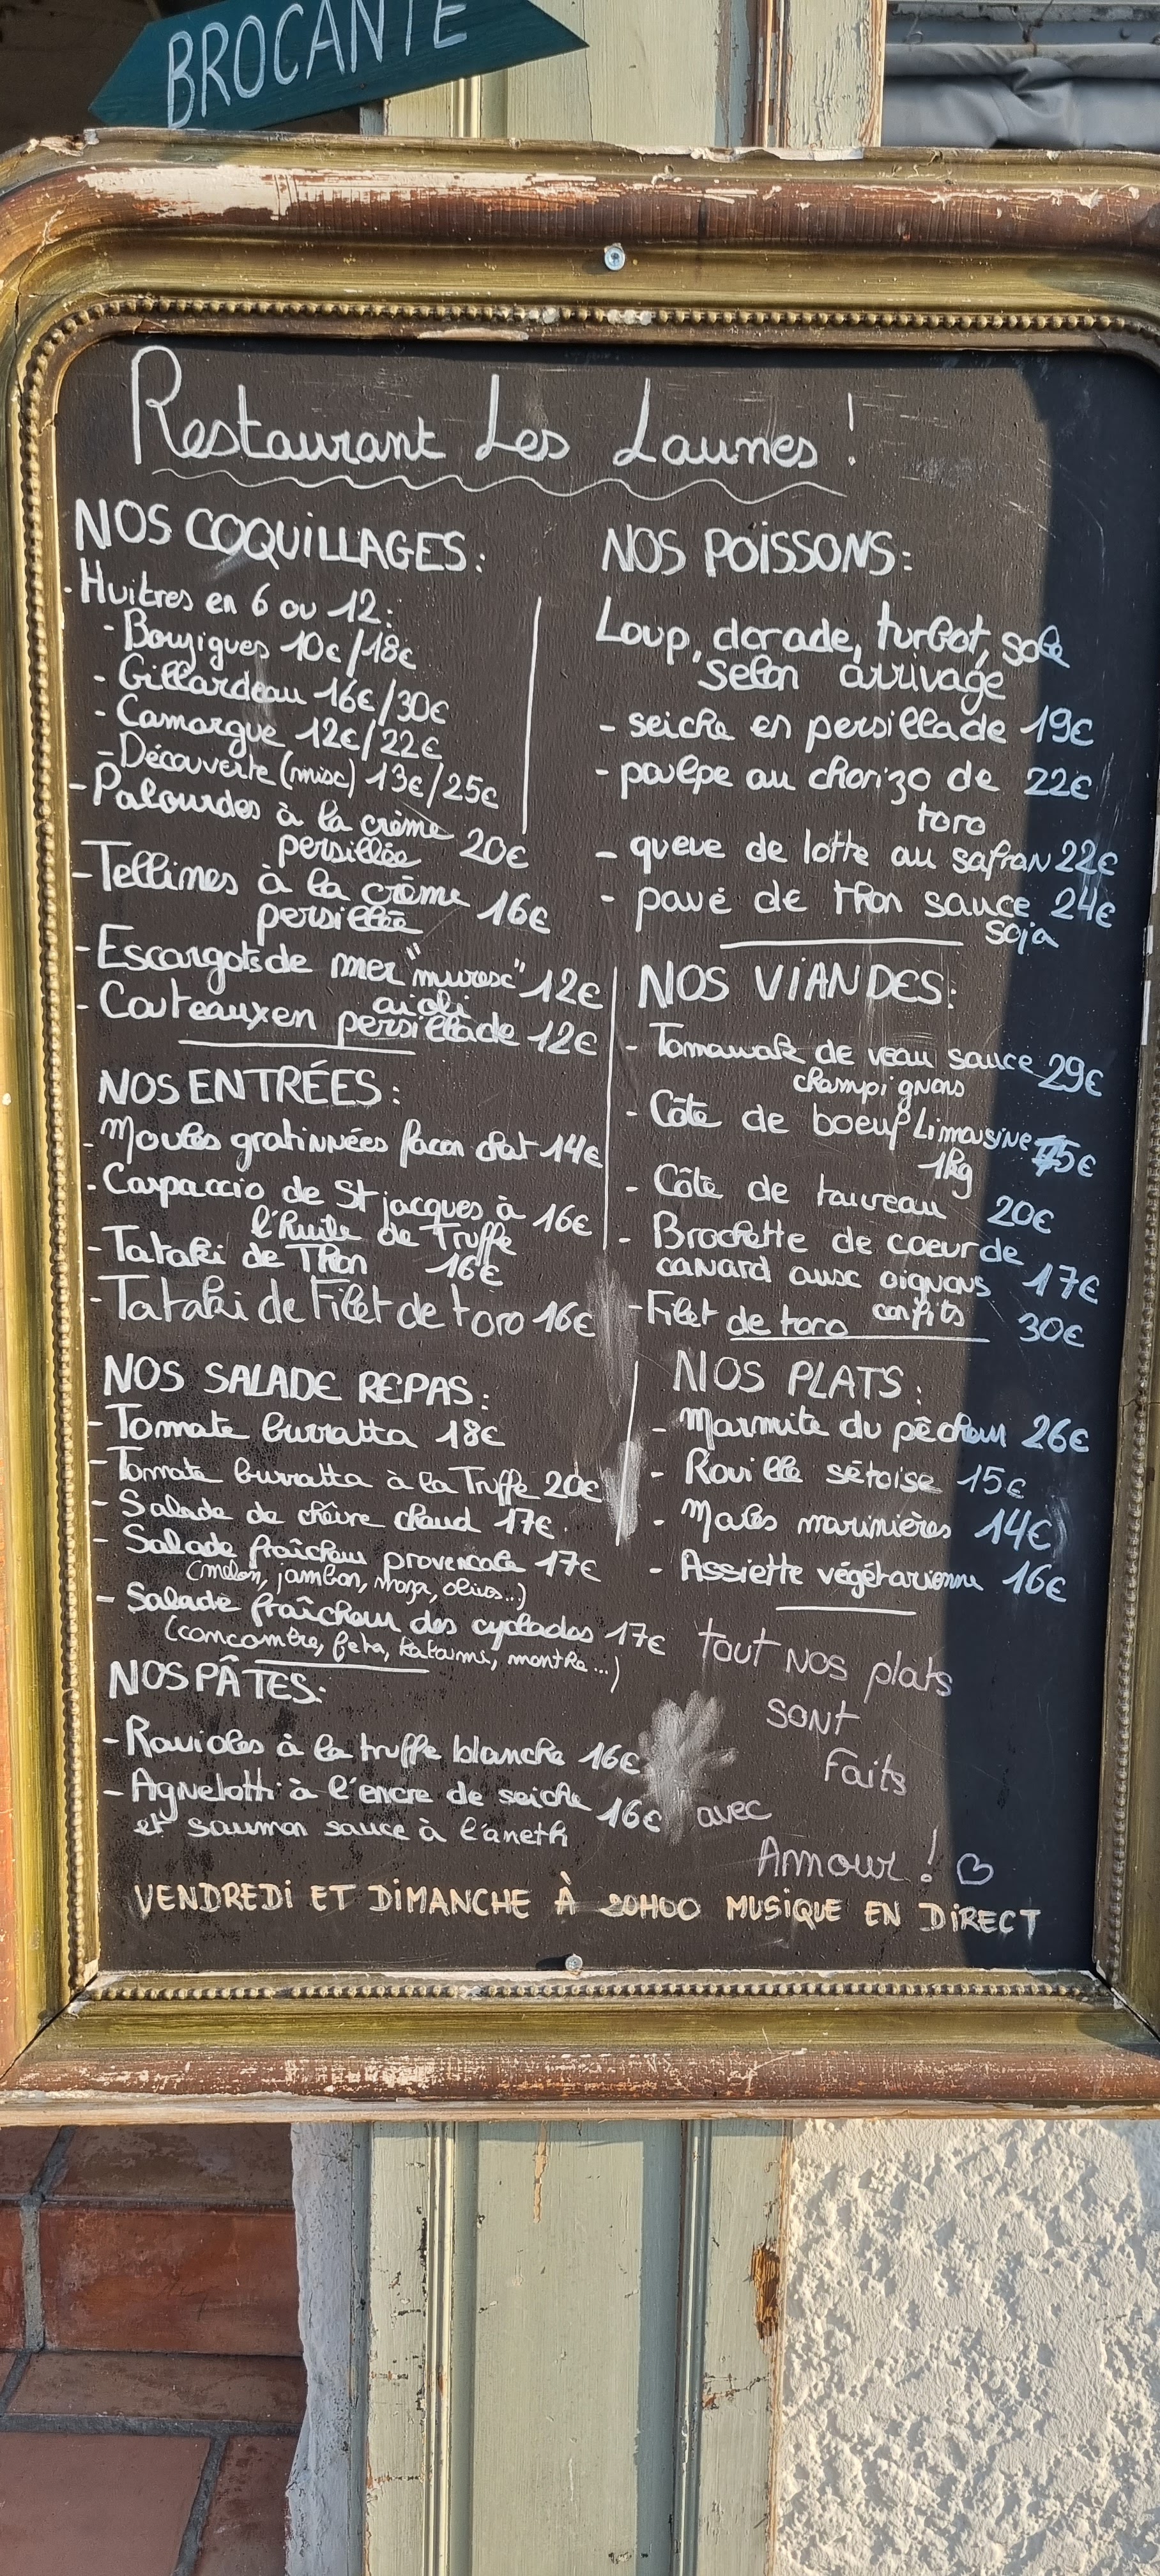 BROCANTE
Restaurant Les Launes !
NOS COQUILLAGES :
- Huitres en 6 ou 12 :
- Bouzigues 10€/18€
- Gillardeau 16€/30€
- Camargue 12€/22€
- Découverte (misc) 13€/25€
- Palourdes à la crème
persillée 20€
- Tellines à la crème
persillée 16€
- Escargots de mer "murex" 12€
aioli
- Couteaux en persillade 12€
NOS ENTRÉES :
- Moules gratinnées facon chat 14€
- Carpaccio de St jacques à
l'huile de Truffe 16€
- Tataki de Thon 16€
- Tataki de Filet de toro 16€
NOS SALADE REPAS :
- Tomate burratta 18€
- Tomate burratta à la Truffe 20€
- Salade de chèvre chaud 17€
- Salade fraîcheur provencale 17€
(melon, jambon, moza, olives...)
- Salade fraîcheur des cyclades 17€
(concombre, feta, kalami, menthe...)
NOS PÂTES :
- Ravioles à la truffe blanche 16€
- Agnelotti à l'encre de seiche
et saumon sauce à l'aneth 16€
NOS POISSONS :
Loup, dorade, turbot, sole
selon arrivage
- seiche en persillade 19€
- poulpe au chorizo de 22€
toro
- queue de lotte au safran 22€
- pavé de thon sauce 24€
soja
NOS VIANDES :
- Tomawak de veau sauce 29€
champignons
- Côte de boeuf Limousine 75€
1kg
- Côte de taureau 20€
- Brochette de coeur de
canard aux oignons 17€
confits
- Filet de toro 30€
NOS PLATS :
- Marmite du pêcheur 26€
- Rouille sétoise 15€
- Moules marinières 14€
- Assiette végétarienne 16€
tout nos plats
sont
Faits
avec
Amour ! ♡
VENDREDI ET DIMANCHE À 20H00 MUSIQUE EN DIRECT